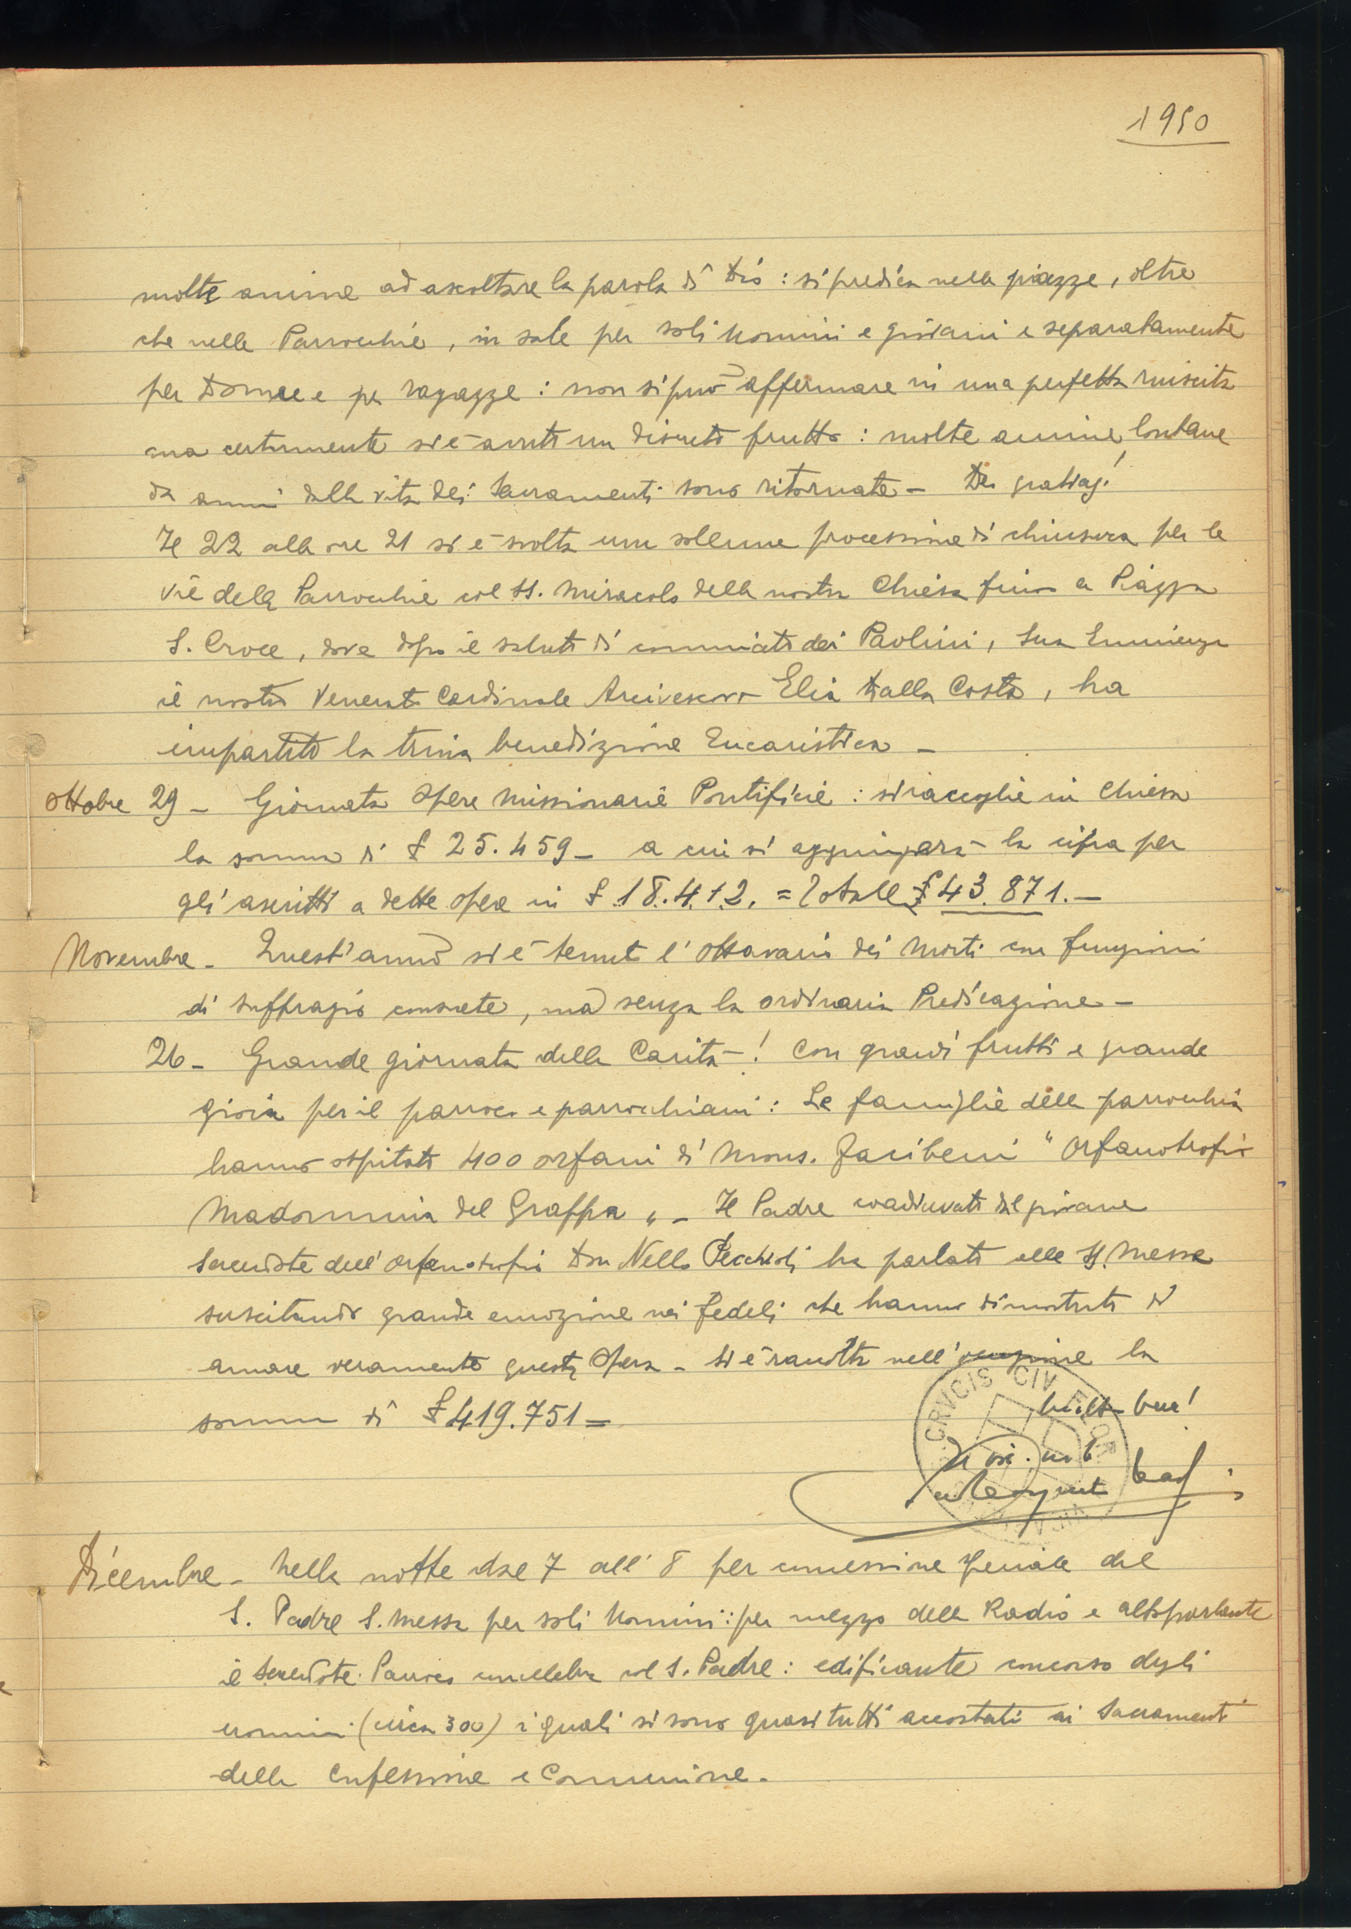 1950
molte anime ad ascoltare la parola di Dio : si predica nelle piazze, oltre
che nelle Parrocchie, in sale per soli uomini e giovani e separatamente
per Donne e per ragazze : non si può affermare in una perfetta riuscita
ma certamente si è avuto un discreto frutto : molte anime lontane
da anni dalla vita dei Sacramenti sono ritornate - Deo gratias!
Il 22 alle ore 21 si è svolta una solenne processione di chiusura per le
vie della Parrocchia col SS. Miracolo della nostra Chiesa fino a Piazza
S. Croce, dove dopo il saluto di commiato dei Paolini, Sua Eminenza
il nostro Venerato Cardinale Arcivescovo Elia Dalla Costa, ha
impartito la trina benedizione Eucaristica -
Ottobre 29 - Giornata Opere Missionarie Pontificie : si raccoglie in Chiesa
la somma di £ 25.459 - a cui si aggiungerà la cifra per
gli ascritti a dette opere in £ 18.412. = Totale £ 43.871. -
Novembre - Quest'anno si è tenuto l'Ottavario dei Morti con funzioni
di suffragio consuete, ma senza la ordinaria Predicazione -
26 - Grande giornata della Carità ! Con grandi frutti e grande
gioia per il parroco e parrocchiani : Le famiglie della parrocchia
hanno ospitato 400 orfani di Mons. Facibeni " Orfanotrofio
Madonnina del Grappa " - Il Padre coadiuvato dal giovane
Sacerdote dell'Orfanotrofio Don Nello Pecchioli ha parlato alle SS. Messe
suscitando grande emozione nei fedeli che hanno dimostrato di
amare veramente questa Opera - Si è raccolta nell'occasione la
somma di £ 419.751 =
CRVCIS CIV FLOR
molto bene!
Dicembre - Nella notte dal 7 all' 8 per concessione speciale del
S. Padre S. Messa per soli Uomini : per mezzo della Radio e altoparlante
il Sacerdote Parroco concelebra col S. Padre : edificante concorso degli
uomini (circa 300) i quali si sono quasi tutti accostati ai Sacramenti
della Confessione e Comunione.